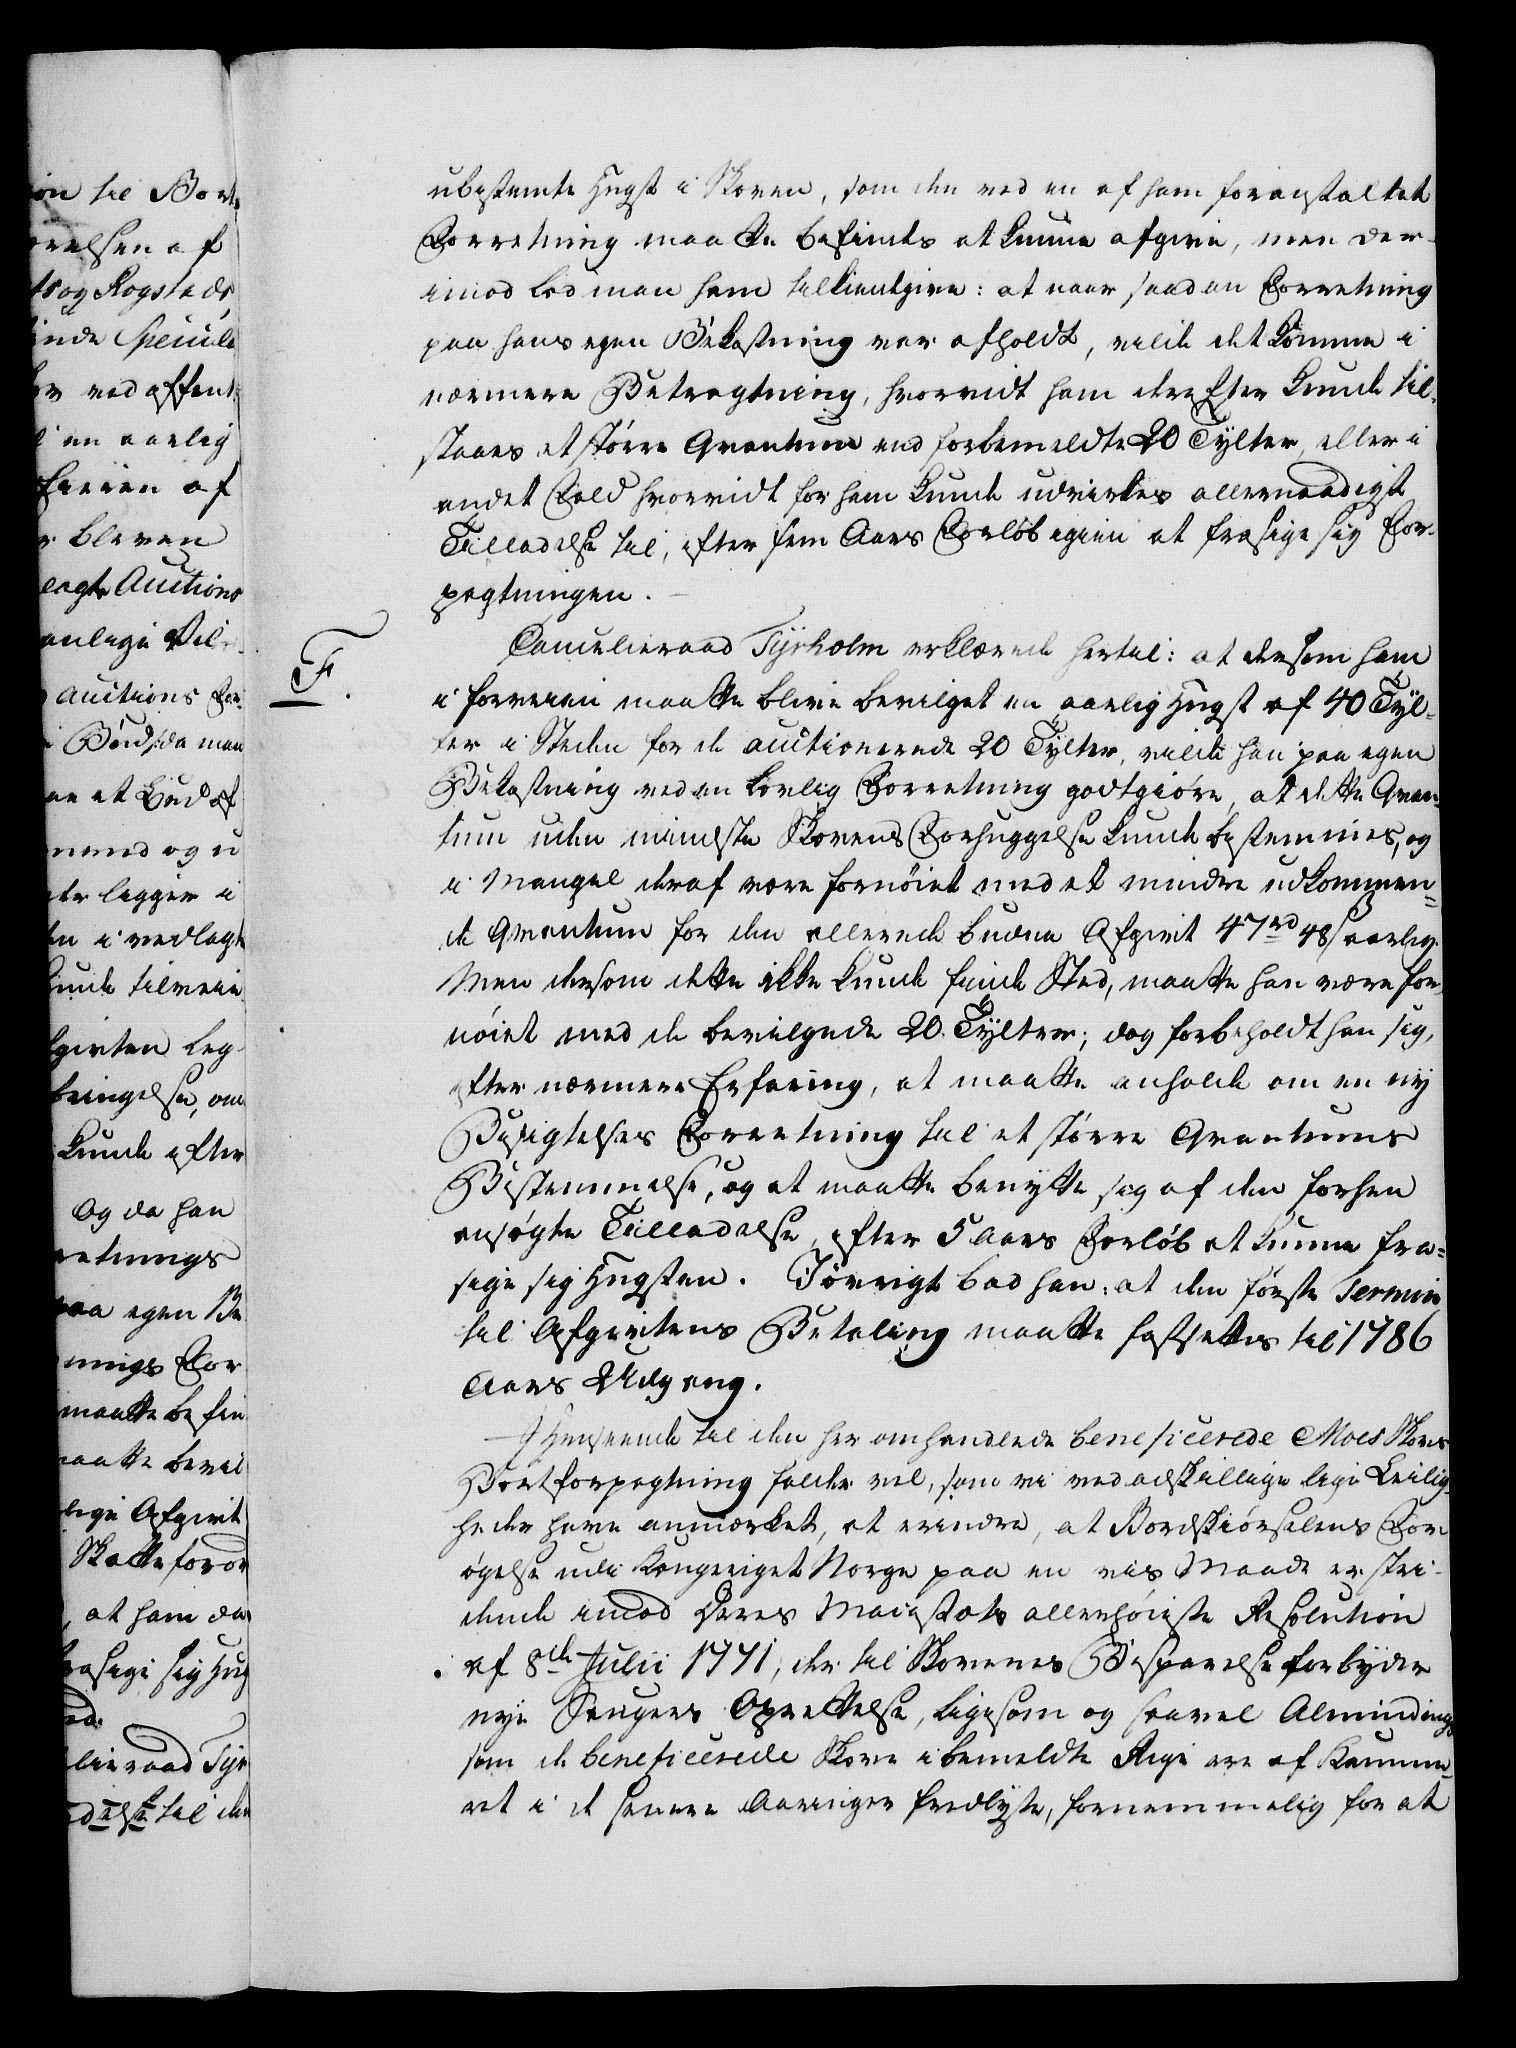 ion til Bort-
relsen af
ts og Rogstads
inde Speciele
ør ved offent-
l en aarlig
r bleven
lagte Auctions
anlige Vil-
auctions For-
i Bud; da man
et Bud af
mend og u
ligger i
en i vedlagte
kunde tilveie
givten leg-
bringelse, om
kunde efter
Og da han
retnings
paa egen Be
nings For
maatte befin
maatte bevil
lige Afgivt
Skatteforor
, at ham da
frasige sig Hug
lieraad Tyr
delse til den
ubestemte Hugst i Skoven, som den ved en af ham foranstaltet
Forretning maatte befindes at kunne afgive, men der-
imod lod man ham tilkiendgive: at naar saadan Forretning
paa hans egen Bekostning var afholdt, vilde det komme i
nærmere Betragtning, hvorvidt ham derefter kunde til-
staaes et større Qvantum end forbemeldte 20 Tylter, eller i
andet Fald hvorvidt for ham kunde udvirkes allernaadigst
Tilladelse til, efter fem Aars Forløb igien at frasige sig For-
pagtningen. —
F.
Cancelieraad Tyrholm erklærede hertil: at dersom ham
i forveien maatte blive bevilget en aarlig Hugst af 40 Tyl-
ter i Steden for de auctionerede 20 Tylter, vilde han paa egen
Bekostning ved en lovlig Forretning godtgiøre, at dette Qvan-
tum uden mindste Skovens Forhuggelse kunde bestemmes, og
i Mangel deraf være fornøiet med et mindre udkommen-
de Qvantum for den allerede budne Afgivt 47 rd 48 s aarlig.
Men dersom dette ikke kunde finde Sted, maatte han være for-
nøiet med de bevilgede 20 Tylter; dog forbeholdt han sig,
efter nærmere Erfaring, at maatte anholde om en ny
Besigtelses Forretning til et større Qvantums
Bestemmelse, og at maatte benytte sig af den forhen
ansøgte Tilladelse, efter 5 Aars Forløb at kunne fra-
sige sig Hugsten. Iøvrigt bad han: at den første Termin
til Afgivtens Betaling maatte fastsettes til 1786
Aars Udgang.
I Henseende til den her omhandlede beneficerede Moes Skovs
Bortforpagtning falder vel, som vi ved adskillige lige Leilig-
heder have anmærket, at erindre, at Bordskiørselens For-
øgelse udi Kongeriget Norge paa en vis Maade er stri-
dende imod Deres Majestæts allerhøieste Resolution
af 8de Julii 1771, der til Skovenes Besparelse forbyder
nye Sauges Oprettelse, ligesom og saavel Almindings
som de beneficerede Skove i bemeldte Rige ere af Kamme-
ret i de senere Aaringer fredlyste, fornemmelig for at